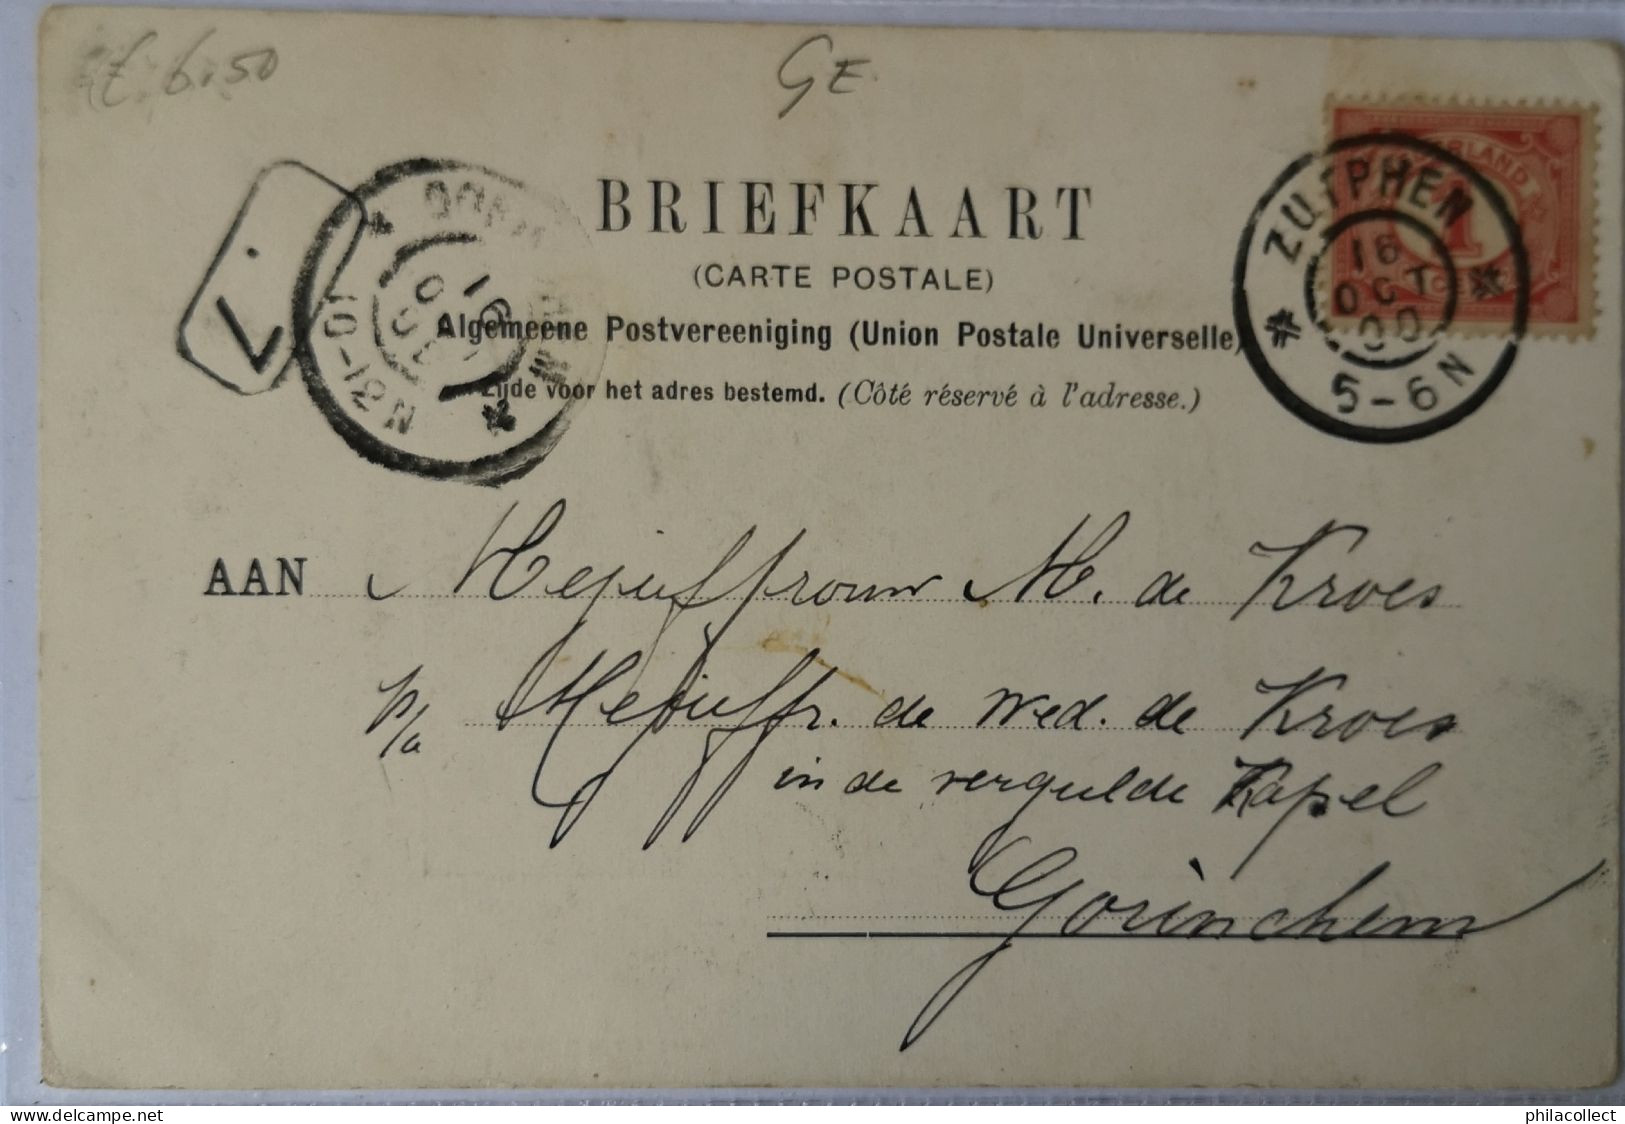 £ 6.50
GE.
BRIEFKAART
(CARTE POSTALE)
Algemeene Postvereeniging (Union Postale Universelle)
Zijde voor het adres bestemd. (Côté réservé à l'adresse.)
ZUTPHEN
16
OCT
00
5-6N
1
10-12N
16
AAN Mejuffrouw M. de Kroes
p/a Mejuffr. de Wed. de Kroes
in de vergulde Kapel
Gorinchem
philacollect